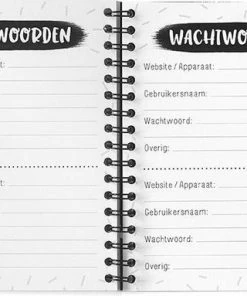 WOORDEN
WACHTWO
Website / Apparaat:
Gebruikersnaam:
Wachtwoord:
Overig:
Website / Apparaat:
Gebruikersnaam:
Wachtwoord:
Overig: